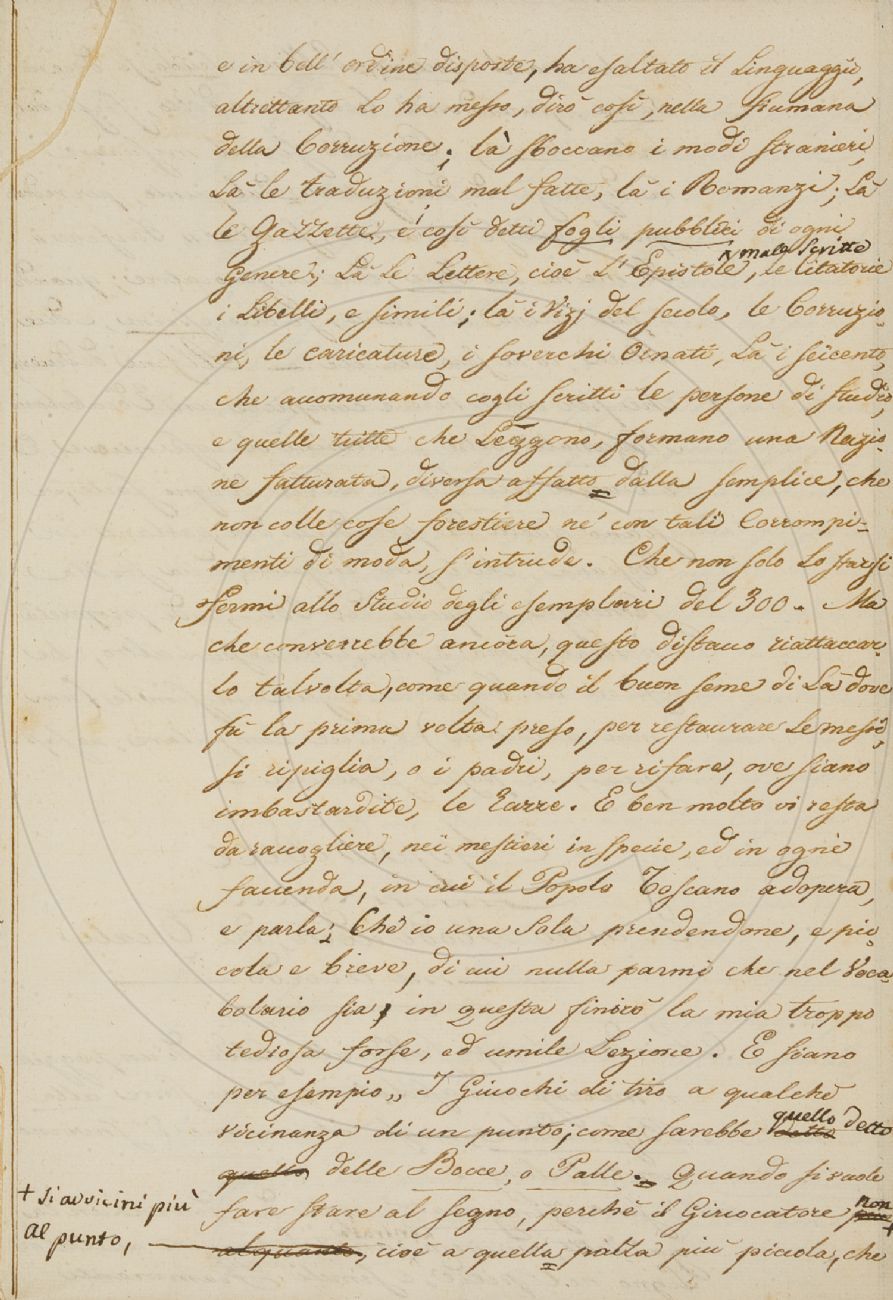 e in bell' ordine disposte, ha esaltato il Linguaggio,
altrettanto Lo ha messo, dirò così, nella fiumana
della Corruzione; là sboccano i modi stranieri,
Là le traduzioni mal fatte, là i Romanzi; Là
le Gazzette, e così detti fogli pubblici di ogni
male scritte
Genere; Là Le Lettere, cioè L'Epistole, Le Citatorie
i Libelli, e simili; là i Vizj del secolo, le Corruzio-
ni, le caricature, i soverchi Ornati, Là i seicento,
che accomunando cogli scritti le persone di studio,
e quelle tutte che Leggono, formano una Nazio-
ne fatturata, diversa affatto dalla semplice, che
non colle cose forestiere nè con tali Corrompi-
menti di moda, s'intrude. Che non solo Lo
fermi allo Studio degli esemplari del 300. Ma
che converrebbe ancora, questo distacco riattaccar-
lo talvolta, come quando il buon seme di Là dove
fù la prima volta preso, per restaurare Le messi,
si ripiglia, o i padri, per rifare, ove siano
imbastardite, le Razze. E ben molto vi resta
da raccogliere, nei mestieri in specie, ed in ogni
faccenda, in cui il Popolo Toscano adopera,
e parla; Chè io una sola prendendone, e pic-
cola e breve, di cui nulla parmi che nel Voca-
bolario sia, in questa finirò la mia troppo
tediosa forse, ed umile Lezione. E siano
per esempio,, I Giuochi di tiro a qualche
vicinanza di un punto; come sarebbe quello detto
quello delle Bocce, o Palle. Quando si vuole
fare stare al segno, perchè il Giuocatore non
+ si avvicini più
al punto,
al quanto, cioè a quella palla più piccola, che